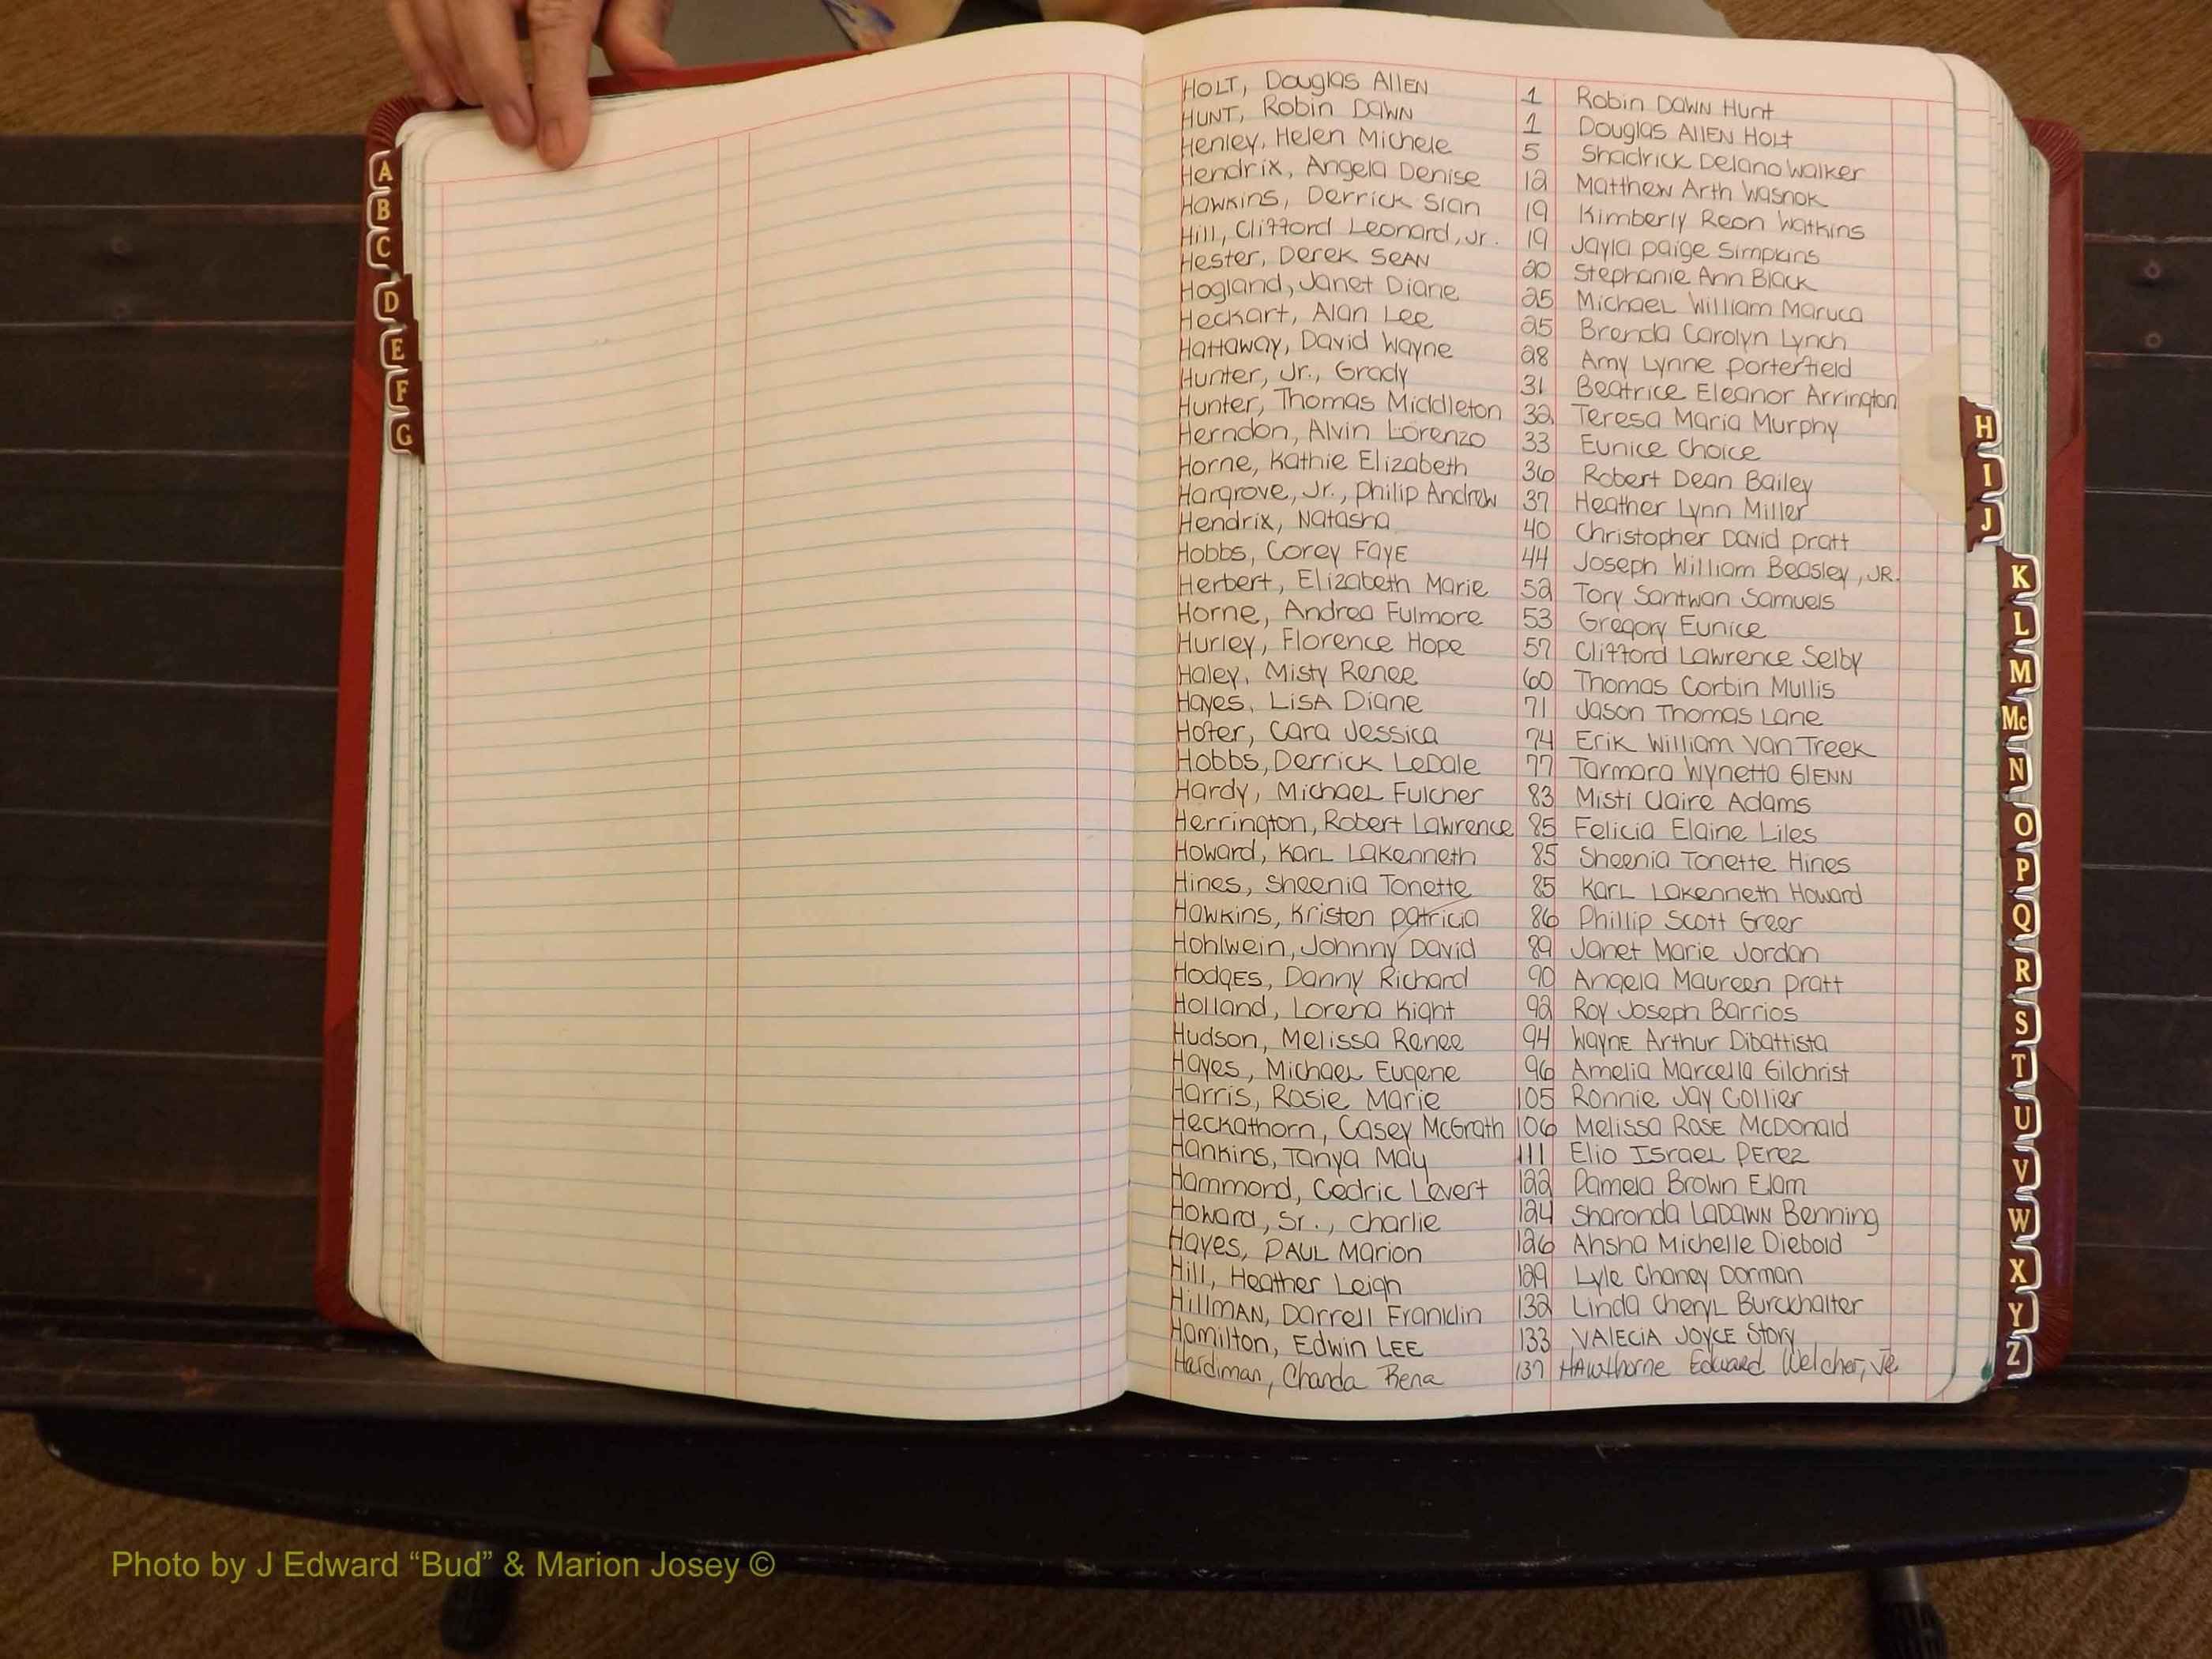 A
B
C
D
E
F
G
HOLT, Douglas AllEN 1 Robin DAWN Hunt
HUNT, Robin DAWN 1 Douglas AllEN HOLT
Henley, Helen Michele 5 Shadrick Delano Walker
Hendrix, Angela Denise 12 Matthew Arth Wasnok
Hawkins, Derrick Sian 19 Kimberly Reon Watkins
Hill, Clifford Leonard, Jr. 19 Jayla Paige Simpkins
Hester, Derek SEAN 20 Stephanie Ann Black
Hogland, Janet Diane 25 Michael William Maruca
Heckart, Alan Lee 25 Brenda Carolyn Lynch
Hattaway, David Wayne 28 Amy Lynne Porterfield
Hunter, Jr., Grady 31 Beatrice Eleanor Arrington
Hunter, Thomas Middleton 32 Teresa Maria Murphy
Herndon, Alvin Lorenzo 33 Eunice Choice
Horne, Kathie Elizabeth 36 Robert Dean Bailey
Hargrove, Jr., Philip Andrew 37 Heather Lynn Miller
Hendrix, Natasha 40 Christopher David Pratt
Hobbs, Corey FAYE 44 Joseph William Beasley, JR.
Herbert, Elizabeth Marie 52 Tory Santwan Samuels
Horne, Andrea Fulmore 53 Gregory Eunice
Hurley, Florence Hope 57 Clifford Lawrence Selby
Haley, Misty Renee 60 Thomas Corbin Mullis
Hayes, LISA Diane 71 Jason Thomas Lane
Hofer, Cara Jessica 74 Erik William Van Treek
Hobbs, Derrick LeDale 77 Tarmara Wynetta GlENN
Hardy, Michael Fulcher 83 Misti Claire Adams
Herrington, Robert Lawrence 85 Felicia Elaine Liles
Howard, Karl Lakenneth 85 Sheenia Tonette Hines
Hines, Sheenia Tonette 85 Karl Lakenneth Howard
Hawkins, Kristen Patricia 86 Phillip Scott Greer
Hohlwein, Johnny David 89 Janet Marie Jordan
HodgES, Danny Richard 90 Angela Maureen Pratt
Holland, Lorena Kight 92 Roy Joseph Barrios
Hudson, Melissa Renee 94 WAYNE Arthur Dibattista
Hayes, Michael Eugene 96 Amelia Marcella Gilchrist
Harris, Rosie Marie 105 Ronnie Jay Collier
Heckathorn, Casey McGrath 106 Melissa ROSE McDonald
Hankins, Tanya May 111 Elio Israel PErez
Hammond, Cedric Levert 122 Pamela Brown Elam
Howard, Sr., Charlie 124 Sharonda LADAWN Benning
Hayes, PAUL Marion 126 Ahsha Michelle Diebold
Hill, Heather Leigh 129 Lyle Chaney Dorman
HillMAN, Darrell Franklin 132 Linda Cheryl Burckhalter
Hamilton, Edwin LEE 133 VALECIA JOYCE Story
Hardiman, Chanda Rena 137 HAWthorne Edward Welcher, JR
H
I
J
K
L
M
Mc
N
O
P
Q
R
S
T
U
V
W
X
Y
Z
Photo by J Edward “Bud” & Marion Josey ©